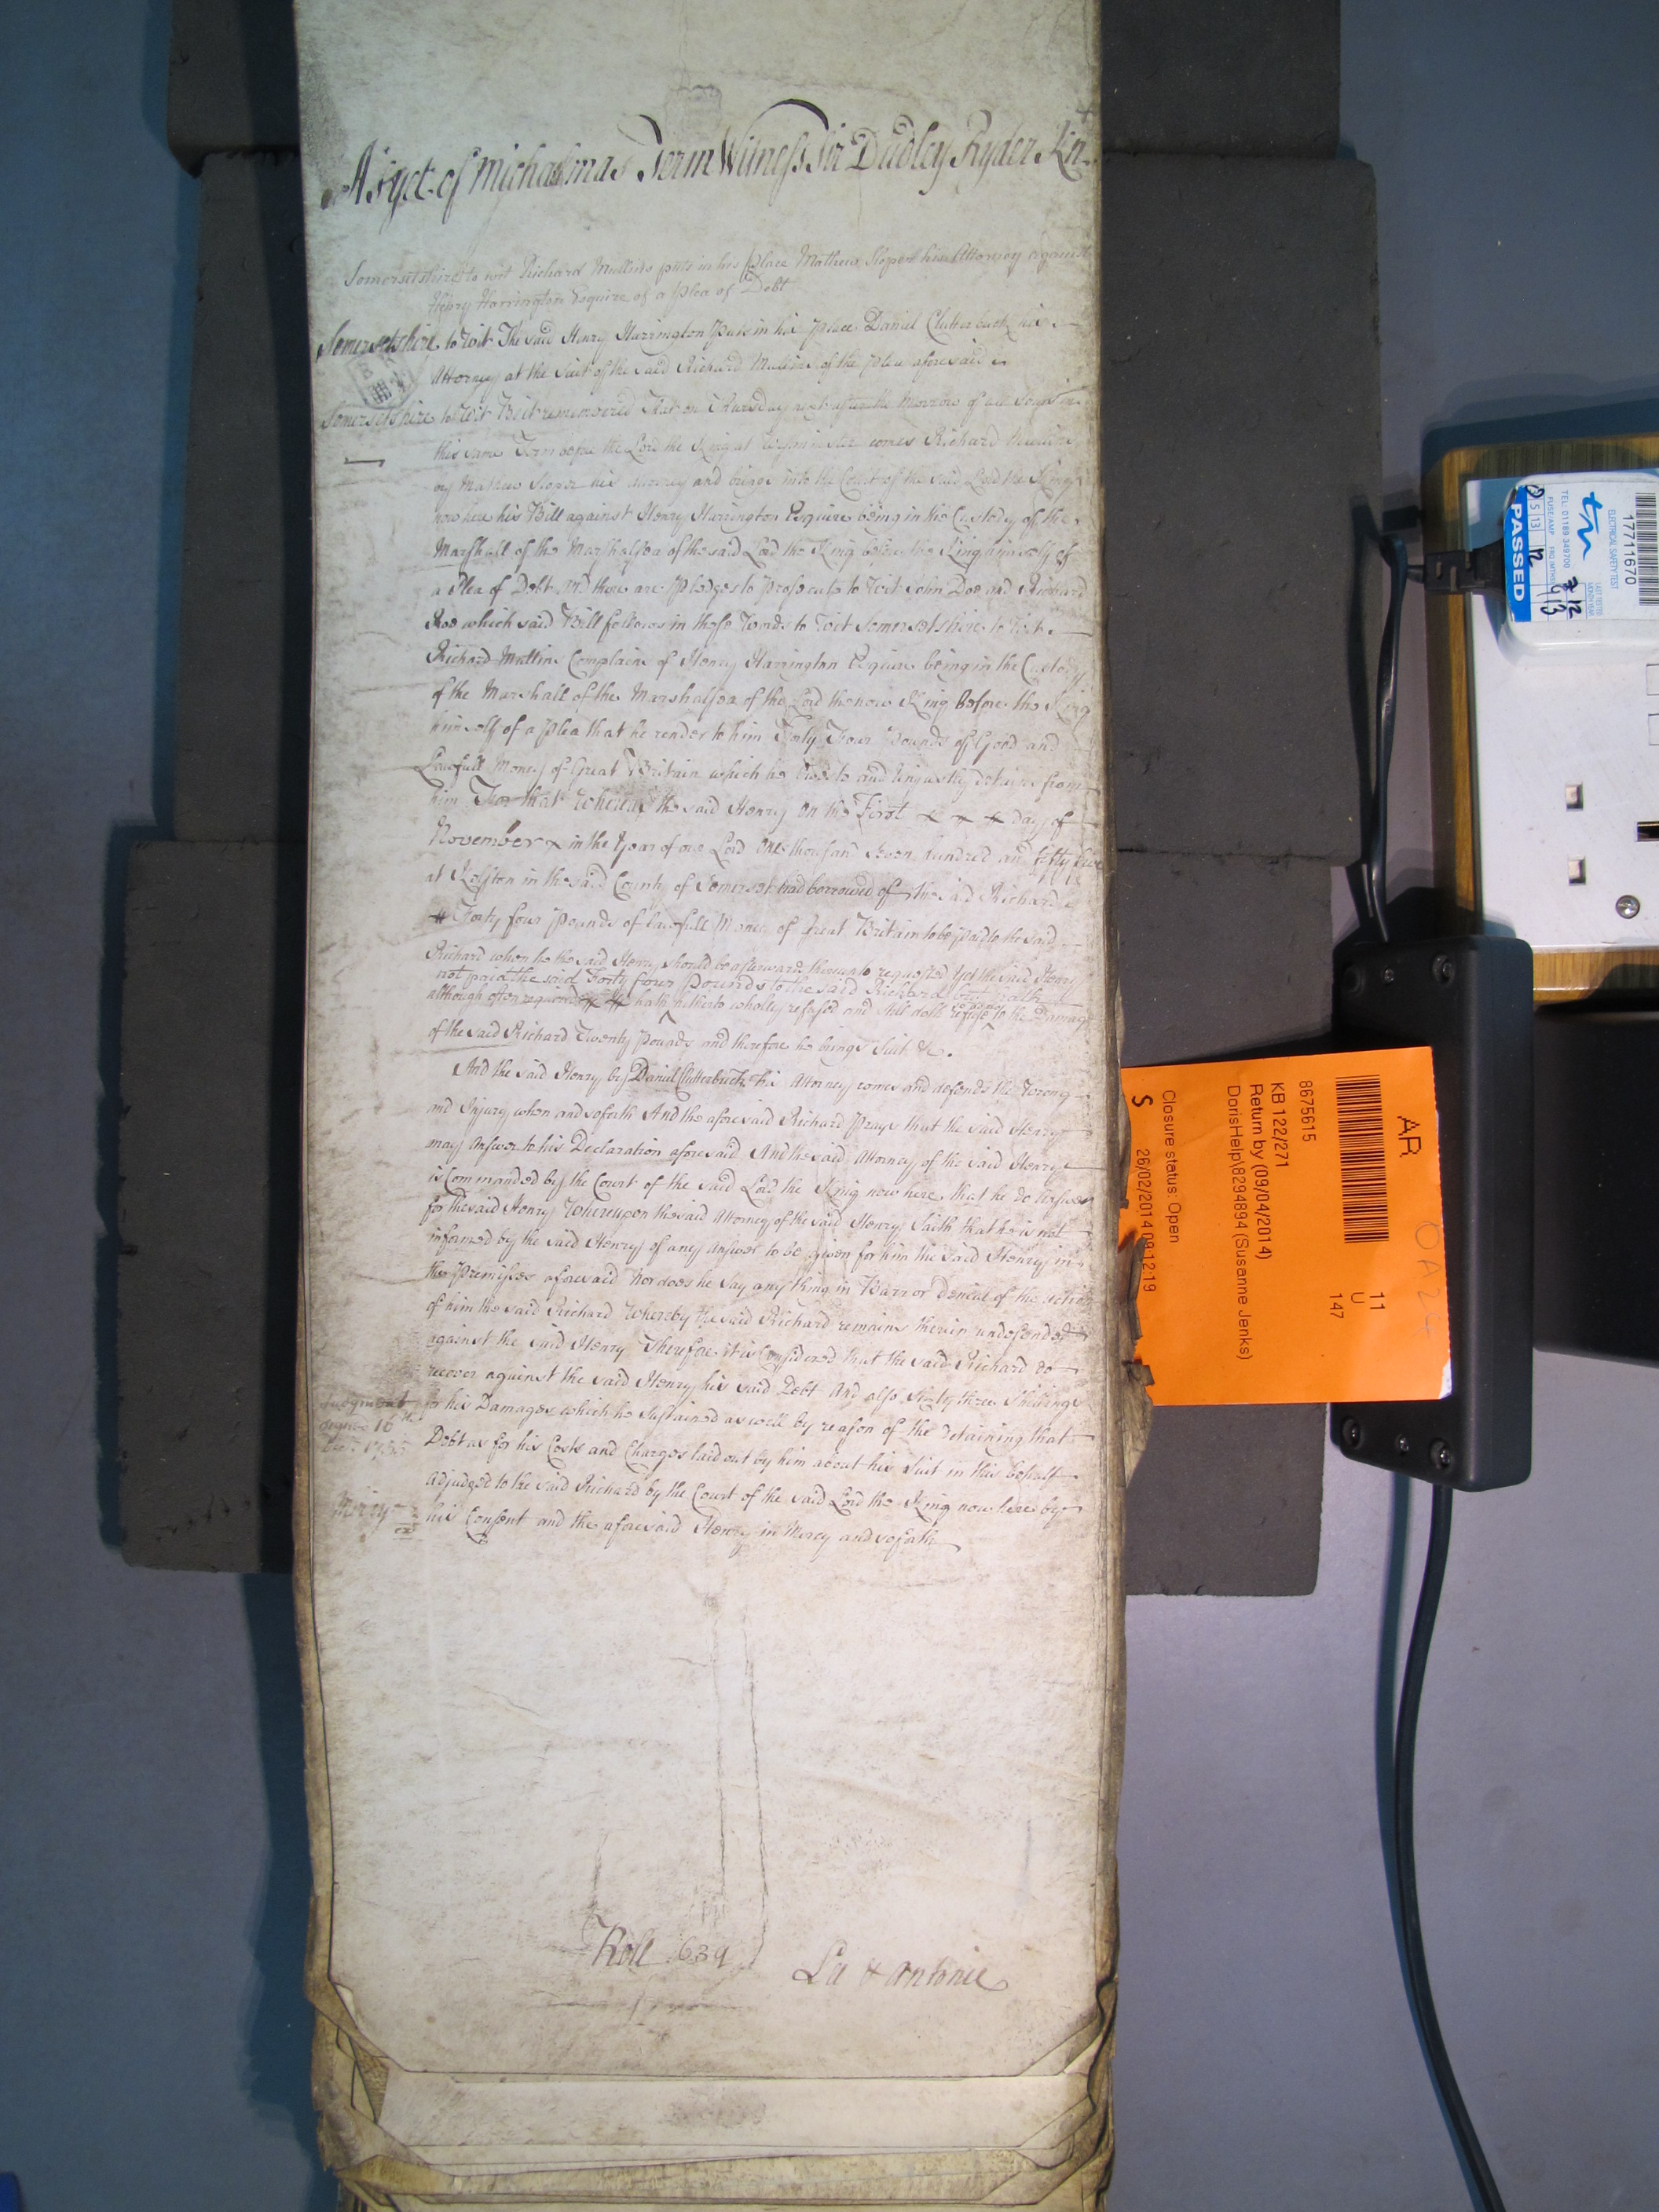 As yet of Michaelmas Term Witness Sir Dudley Ryder Knt
Somersetshire to wit Richard Mullins puts in his place Mathew Sloper his Attorney against
Henry Harrington Esquire of a plea of Debt
Somersetshire to Wit The said Henry Harrington Puts in his place Daniel Clutterbuck his
Attorney at the Suit of the said Richard Mullins of the Plea aforesaid
Somersetshire to Wit Be it remembered That on Thursday next after the Morrow of all Souls in
this same Term before the Lord the King at Westminster comes Richard Mullins
by Mathew Sloper his Attorney and brings into the Court of the said Lord the King
now here his Bill against Henry Harrington Esquire being in the Custody of the
Marshall of the Marshalsea of the said Lord the King before the King himself of
a Plea of Debt And there are Pledges to Prosecute to Wit John Doe and Richard
Roe which said Bill follows in these Words to Wit Somersetshire to Wit
Richard Mullins Complains of Henry Harrington Esquire being in the Custody
of the Marshall of the Marshalsea of the Lord the now King Before the King
himself of a Plea that he render to him Forty Four Pounds of Good and
Lawfull Money of Great Britain which he Owes to and Unjustly detains from
him For that Whereas the said Henry on the First day of
November in the Year of our Lord One thousand Seven hundred and fifty five
at Kelston in the said County of Somerset had borrowed of the said Richard
Forty four Pounds of lawfull Money of Great Britain to be paid to the said
Richard when he the said Henry should be afterwards thereunto requested Yet the said Henry
not paid the said Forty four Pounds to the said Richard but hath
although often requested hath hitherto wholly refused and still doth refuse to the Damage
of the said Richard Twenty Pounds and therefore he brings Suit &c.
And the said Henry by Daniel Clutterbuck his Attorney comes and defends the Wrong
and Injury when and soforth And the aforesaid Richard Prays that the said Henry
may Answer to his Declaration aforesaid And the said Attorney of the said Henry
is Commanded by the Court of the said Lord the King now here that he do Answer
for the said Henry Whereupon the said Attorney of the said Henry Saith that he is not
informed by the said Henry of any Answer to be given for him the said Henry in
the Premisses aforesaid Nor does he Say any thing in Barr or Denial of the action
of him the said Richard Whereby the said Richard remains therein undefended
against the said Henry Therefore it is Considered that the said Richard do
recover against the said Henry his said Debt And also Sixty three Shillings
for his Damages which he Sustained as well by reason of the Detaining that
Debt as for his Costs and Charges laid out by him about his Suit in this behalf
Adjudged to the said Richard by the Court of the said Lord the King now here by
his Consent and the aforesaid Henry in Mercy and soforth
Judgment
signed 16th
Decr 1755
Mercy
Roll 639
La & Antonie
AR
8675615
KB 122/271
Return by (09/04/2014)
DorisHelp\8294894 (Susanne Jenks)
Closure status: Open
S
26/02/2014 09:12:19
11
U
147
17711670
ELECTRICAL SAFETY TEST
TEL: 01189 349700
PASSED